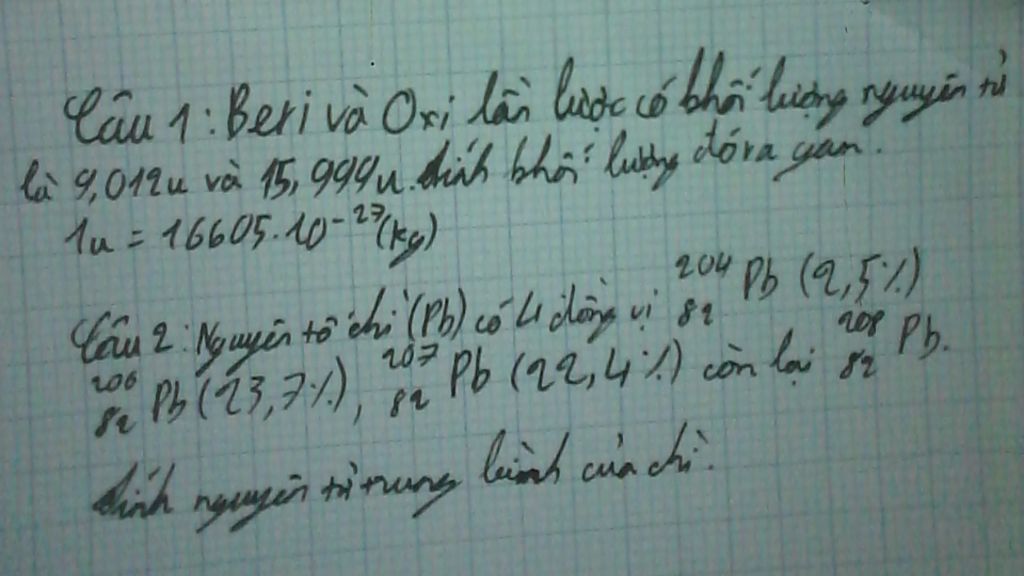 Câu 1: Beri và Oxi lần lược có khối lượng nguyên tử
là 9,012u và 15,999u. tính khối lượng đó ra gam.
1u = 16605.10⁻²⁷(kg)
Câu 2: Nguyên tố chì (Pb) có 4 đồng vị ²⁰⁴₈₂Pb (2,5%)
²⁰⁶₈₂Pb (23,7%), ²⁰⁷₈₂Pb (22,4%) còn lại ²⁰⁸₈₂Pb.
tính nguyên tử trung bình của chì.